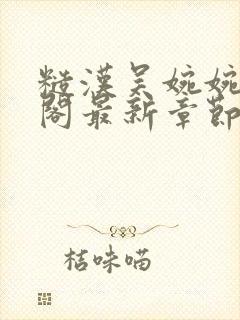 糙漢吴婉婉
閣最新章節
桔味喵